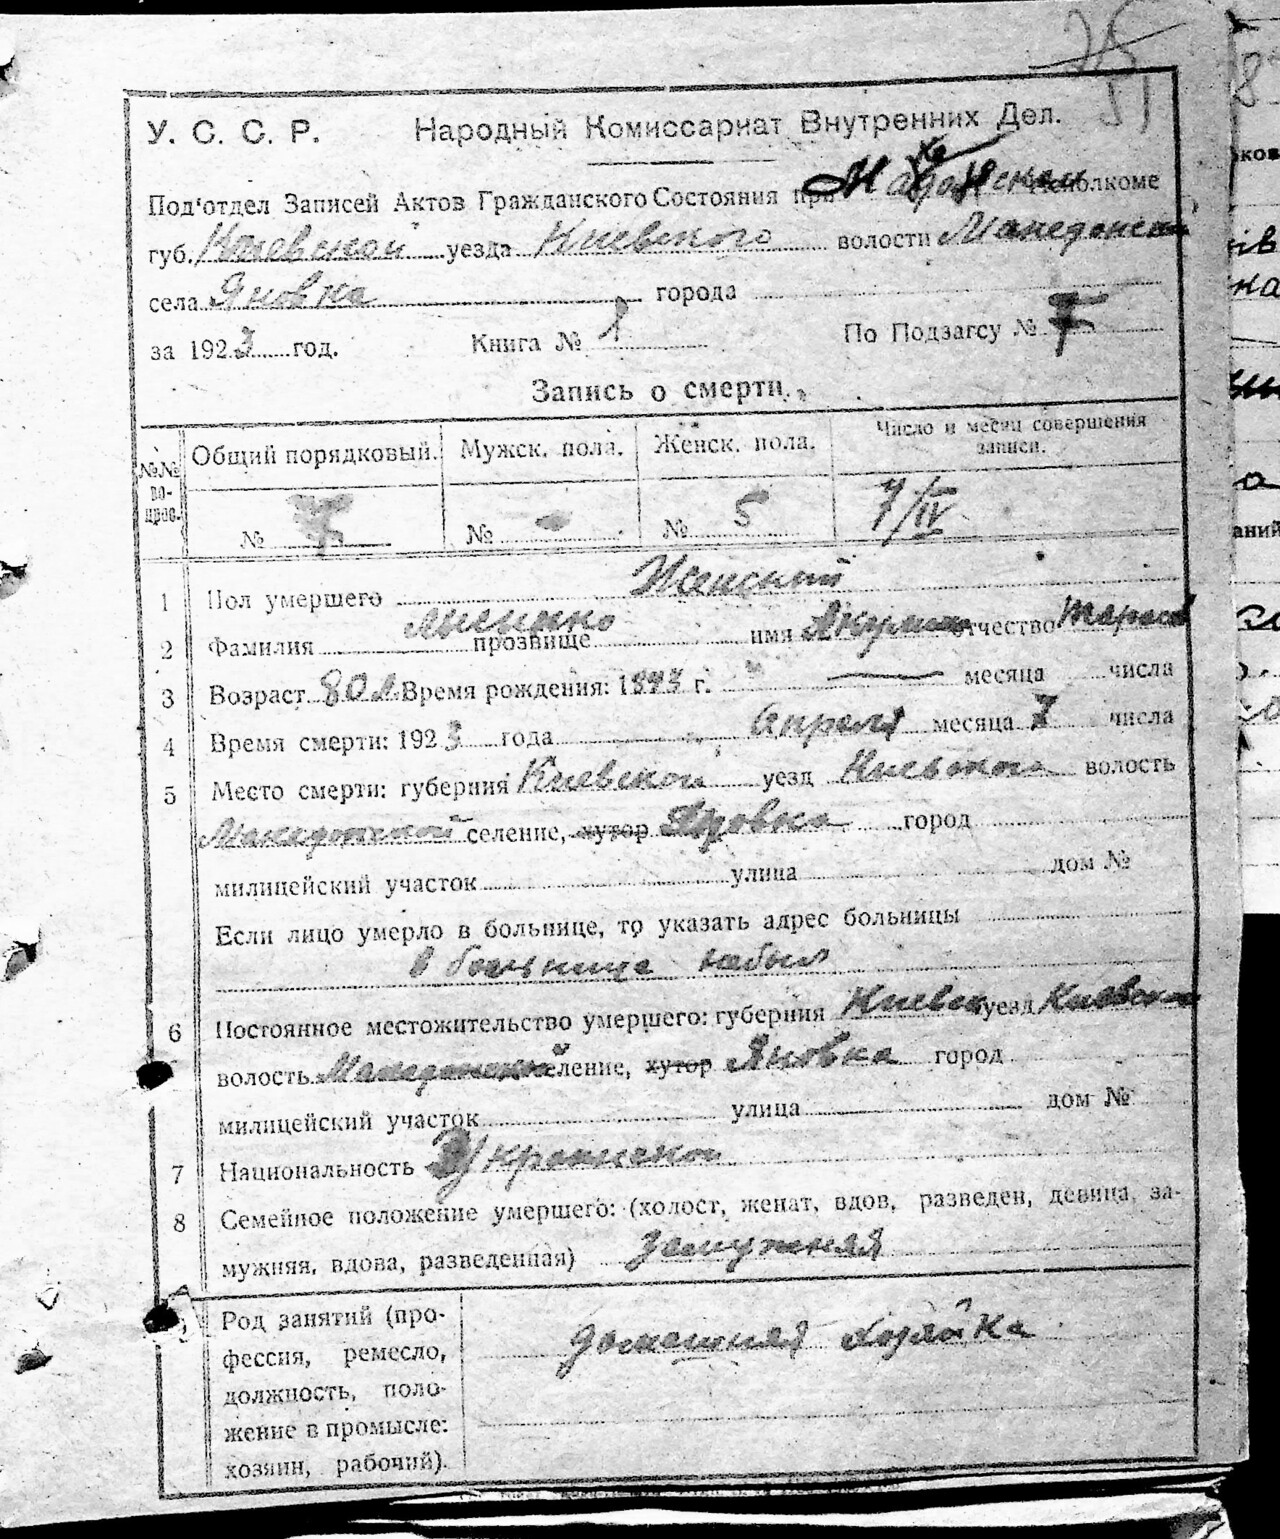 У. С. С. Р. Народный Комиссариат Внутренних Дел.
Под'отдел Записей Актов Гражданского Состояния при Исполкоме
губ. Киевской уезда Киевского волости Македонской
села Яновка города
за 1923 год. Книга № 1 По Подзагсу № 7
Запись о смерти.
№№ во-прос. Общий порядковый. Мужск. пола. Женск. пола. Число и месяц совершения записи.
№ 7 № - № 5 7/IV
1 Пол умершего Женский
2 Фамилия прозвище имя Акулина отчество Тарасов
3 Возраст 80 л. Время рождения: 1843 г. месяца числа
4 Время смерти: 1923 года Апреля месяца 7 числа
5 Место смерти: губерния Киевской уезд Киевского волость
Македонской селение, хутор Яновка город
милицейский участок улица дом №
Если лицо умерло в больнице, то указать адрес больницы
в больнице небыл
6 Постоянное местожительство умершего: губерния Киевск уезд Киевском
волость Македонской селение, хутор Яновка город
милицейский участок улица дом №
7 Национальность
8 Семейное положение умершего: (холост, женат, вдов, разведен, девица, за-
мужняя, вдова, разведенная) Замужняя
Род занятий (про-
фессия, ремесло, домашняя хозяйка
должность, поло-
жение в промысле:
хозяин, рабочий).